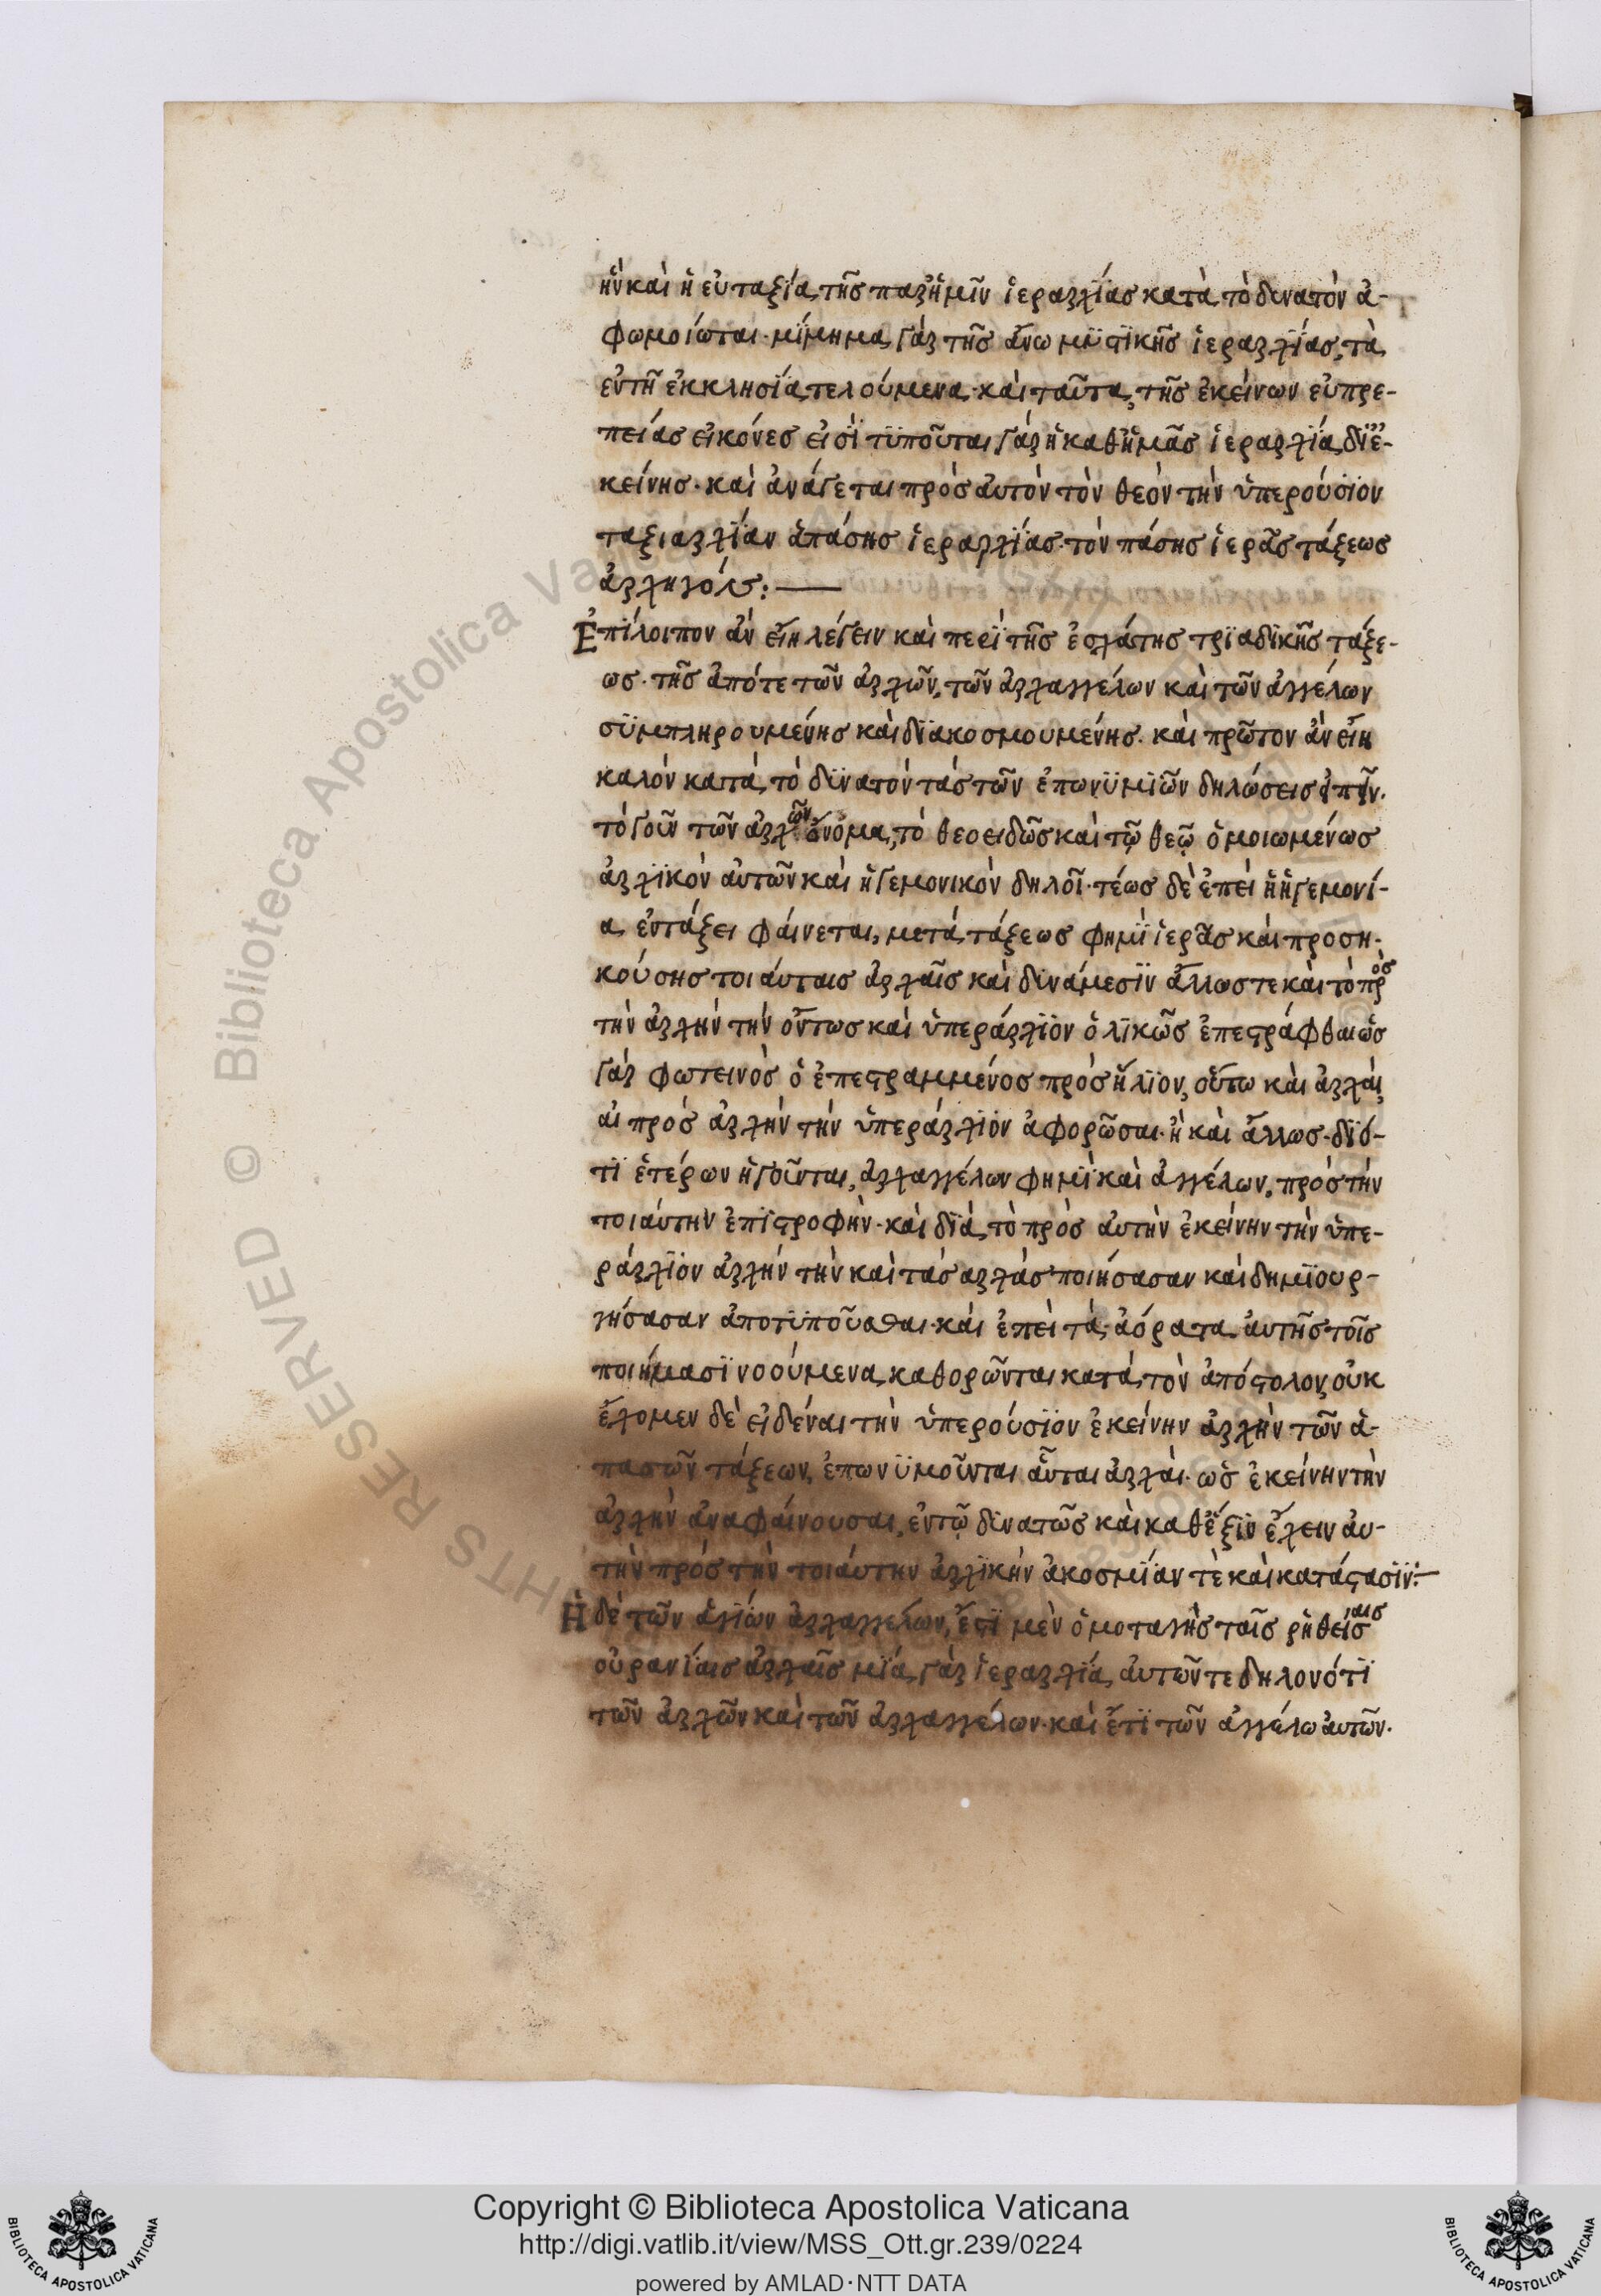 ἣν καὶ ἡ εὐταξία τῆς παρ' ἡμῖν ἱεραρχίας κατὰ τὸ δυνατὸν ἀ-
φωμοίωται· μίμημα γὰρ τῆς ἄνω μυστικῆς ἱεραρχίας, τὰ
ἐν τῇ ἐκκλησίᾳ τελούμενα· καὶ ταῦτα, τῆς ἐκείνων εὐπρε-
πείας εἰκόνες εἰσὶ τυποῦται γὰρ ἡ καθ' ἡμᾶς ἱεραρχία δι' ἐ-
κείνης· καὶ ἀνάγεται πρὸς αὐτὸν τὸν θεὸν τὴν ὑπερούσιον
ταξιαρχίαν ἁπάσης ἱεραρχίας· τὸν πάσης ἱερᾶς τάξεως
ἀρχηγόν:
Ἐπίλοιπον ἂν εἴη λέγειν καὶ περὶ τῆς ἐσχάτης τριαδικῆς τάξε-
ως· τῆς ἀπό τε τῶν ἀρχῶν, τῶν ἀρχαγγέλων καὶ τῶν ἀγγέλων
συμπληρουμένης καὶ διακοσμουμένης· καὶ πρῶτον ἂν εἴη
καλὸν κατὰ τὸ δυνατὸν τὰς τῶν ἐπωνυμιῶν δηλώσεις εἰπεῖν·
τὸ γοῦν τῶν ἀρχῶν ὄνομα, τὸ θεοειδῶς καὶ τῷ θεῷ ὁμοιωμένως
ἀρχικὸν αὐτῶν καὶ ἡγεμονικὸν δηλοῖ· τέως δὲ ἐπεὶ ἡ ἡγεμονί-
α ἐν τάξει φαίνεται, μετὰ τάξεως φημὶ ἱερᾶς καὶ προση-
κούσης τοιαύταις ἀρχαῖς καὶ δυνάμεσιν ἄλλως τε καὶ τὸ πρὸς
τὴν ἀρχὴν τὴν ὄντως καὶ ὑπεράρχιον ὁλικῶς ἐπεστράφθαι ὡς
γὰρ φωτεινὸς ὁ ἐπεστραμμένος πρὸς ἥλιον, οὕτω καὶ ἀρχαὶ,
αἱ πρὸς ἀρχὴν τὴν ὑπεράρχιον ἀφορῶσαι· ἢ καὶ ἄλλως· διό-
τι ἑτέρων ἡγοῦνται, ἀρχαγγέλων φημὶ καὶ ἀγγέλων, πρὸς τὴν
τοιαύτην ἐπιστροφὴν· καὶ διὰ τὸ πρὸς αὐτὴν ἐκείνην τὴν ὑπε-
ράρχιον ἀρχὴν τὴν καὶ τὰς ἀρχὰς ποιήσασαν καὶ δημιουρ-
γήσασαν ἀποτυποῦσθαι· καὶ ἐπεὶ τὰ ἀόρατα αὐτῆς τοῖς
ποιήμασι νοούμενα καθορῶνται κατὰ τὸν ἀπόστολον, οὐκ
ἔχομεν δὲ εἰδέναι τὴν ὑπερούσιον ἐκείνην ἀρχὴν τῶν ἁ-
πασῶν τάξεων, ἐπωνυμοῦνται αὗται ἀρχαὶ· ὡς ἐκείνην τὴν
ἀρχὴν ἀναφαίνουσαι, ἐν τῷ δυνατῶς καὶ καθ' ἕξιν ἔχειν αὐ-
τὴν πρὸς τὴν τοιαύτην ἀρχικὴν ἀκοσμίαν τὲ καὶ κατάστασιν:
Ἡ δὲ τῶν ἁγίων ἀρχαγγέλων, ἔστι μὲν ὁμοταγὴς ταῖς ῥηθείσαις
οὐρανίαις ἀρχαῖς μία γὰρ ἱεραρχία αὐτῶν τε δηλονότι
τῶν ἀρχῶν καὶ τῶν ἀρχαγγέλων· καὶ ἔτι τῶν ἀγγέλω αὐτῶν·
Copyright © Biblioteca Apostolica Vaticana
http://digi.vatlib.it/view/MSS_Ott.gr.239/0224
powered by AMLAD·NTT DATA